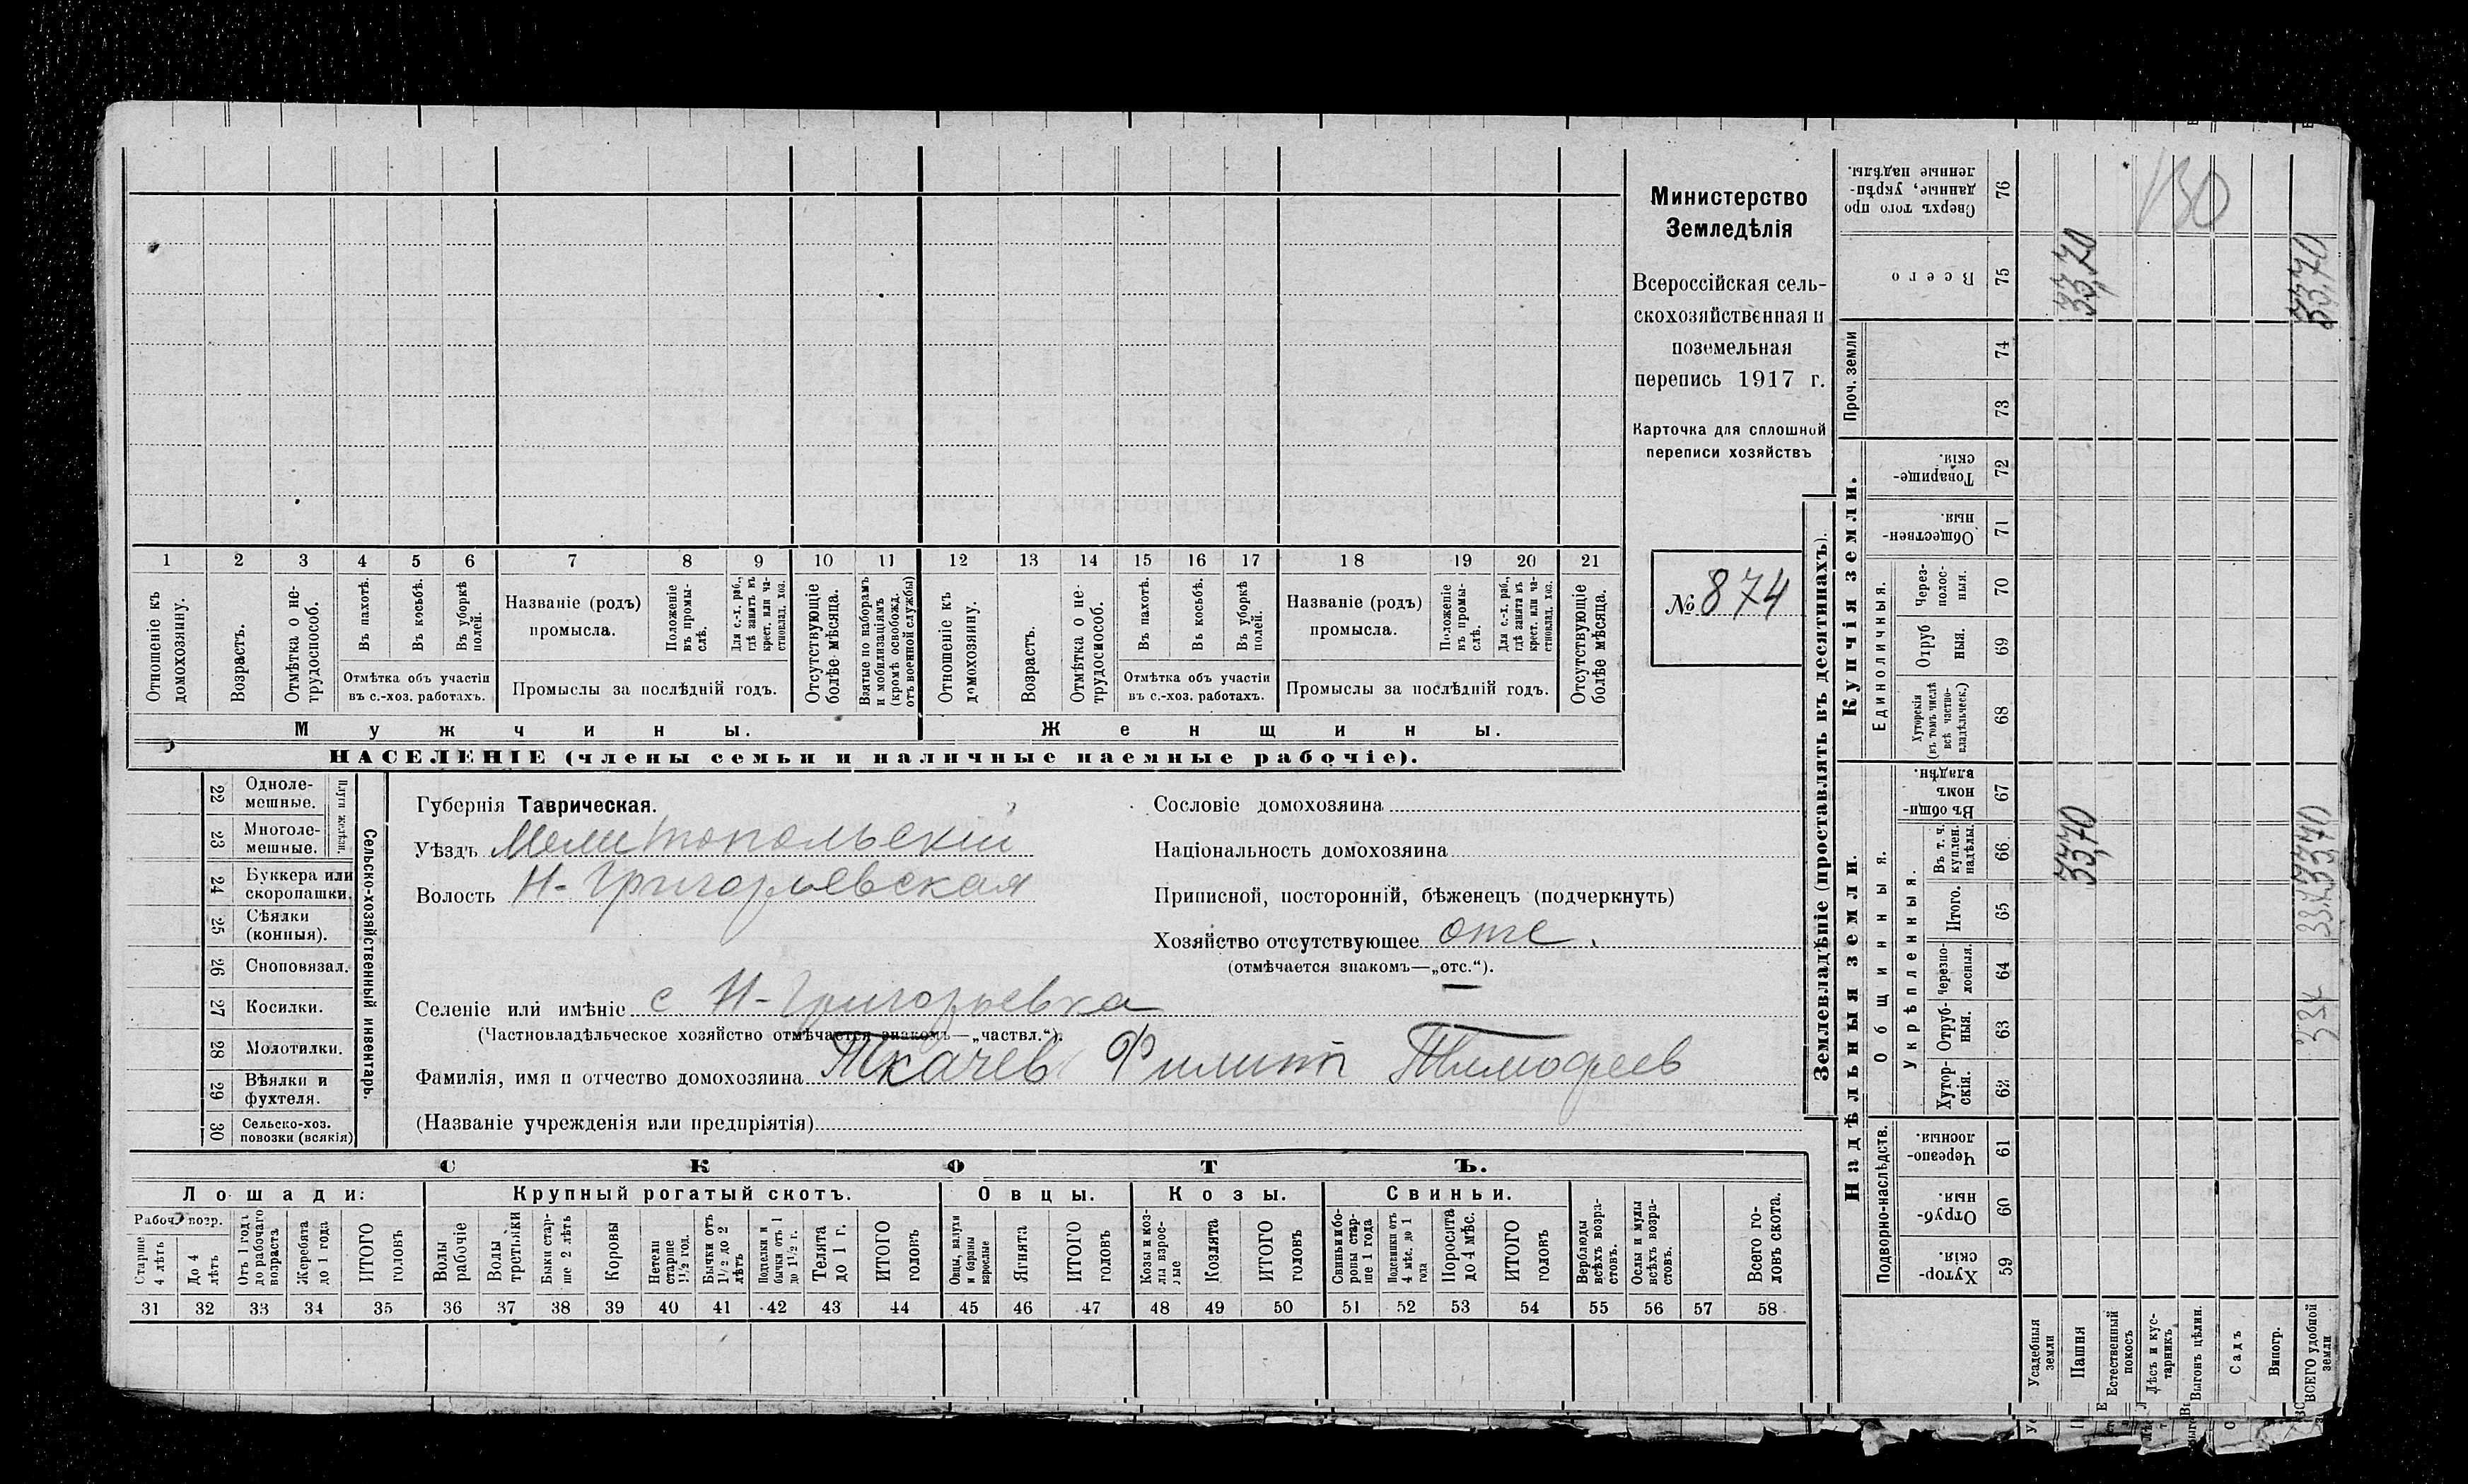 1 2 3 4 5 6 7 8 9 10 11 12 13 14 15 16 17 18 19 20 21
Отношеніе къ домохозяину.
Возрастъ.
Отмѣтка о не-
трудоспособ.
Въ пахотѣ.
Въ косьбѣ.
Въ уборкѣ
полей.
Отмѣтка объ участіи
въ с.-хоз. работахъ.
Названіе (родъ)
промысла.
Положеніе
въ промы-
слѣ.
Для с.-х. раб.,
гдѣ занятъ въ
крест. или ча-
стновлад. хоз.
Промыслы за послѣдній годъ.
Отсутствующіе
болѣе мѣсяца.
Взятые по наборамъ
и мобилизаціямъ
(кромѣ освобожд.
отъ военной службы)
Отношеніе къ
домохозяину.
Возрастъ.
Отмѣтка о не-
трудоспособ.
Въ пахотѣ.
Въ косьбѣ.
Въ уборкѣ
полей.
Отмѣтка объ участіи
въ с.-хоз. работахъ.
Названіе (родъ)
промысла.
Положеніе
въ промы-
слѣ.
Для с.-х. раб.,
гдѣ занята въ
крест. или ча-
стновлад. хоз.
Промыслы за послѣдній годъ.
Отсутствующіе
болѣе мѣсяца.
Мужчины. Женщины.
НАСЕЛЕНІЕ (члены семьи и наличные наемные рабочіе).
Министерство
Земледѣлія
Всероссійская сель-
скохозяйственная и
поземельная
перепись 1917 г.
Карточка для сплошной
переписи хозяйствъ
№ 874
22 Одноле-
мешные.
23 Многоле-
мешные.
Плуги желѣзн.
24 Буккера или
скоропашки.
25 Сѣялки
(конныя).
26 Сноповязал.
27 Косилки.
28 Молотилки.
29 Вѣялки и
фухтеля.
30 Сельско-хоз.
повозки (всякія)
Сельско-хозяйственный инвентарь.
Губернія Таврическая.
Уѣздъ Мелитопольскій
Волость Н-Григорьевская
Сословіе домохозяина
Національность домохозяина
Приписной, посторонній, бѣженецъ (подчеркнуть)
Хозяйство отсутствующее отс.
(отмѣчается знакомъ—„отс.“).
Селеніе или имѣніе с. Н-Григорьевка
(Частновладѣльческое хозяйство отмѣчается знакомъ—„частвл.“).
Фамилія, имя и отчество домохозяина Ткачев Филипп Тимофеев
(Названіе учрежденія или предпріятія)
СКОТЪ.
Лошади: Крупный рогатый скотъ. Овцы. Козы. Свиньи.
Рабоч. возр.
Старше
4 лѣтъ
До 4
лѣтъ
Отъ 1 года
до рабочаго
возраста
Жеребята
до 1 года
ИТОГО
головъ
Волы
рабочіе
Волы
третьяки
Быки стар-
ше 2 лѣтъ
Коровы
Нетели
старше
1½ год.
Бычки отъ
1½ до 2
лѣтъ
Подтелки и
бычки отъ 1
до 1½ г.
Телята
до 1 г.
ИТОГО
головъ
Овцы, валухи
и бараны
взрослые
Ягнята
ИТОГО
головъ
Козы и коз-
лы взрос-
лые
Козлята
ИТОГО
головъ
Свиньи и бо-
ровы стар-
ше 1 года
Подсвинки отъ
4 мѣс. до 1
года
Поросята
до 4 мѣс.
ИТОГО
головъ
Верблюды
всѣхъ возра-
стовъ.
Ослы и мулы
всѣхъ возра-
стовъ.
Всего го-
ловъ скота.
31 32 33 34 35 36 37 38 39 40 41 42 43 44 45 46 47 48 49 50 51 52 53 54 55 56 57 58
Землевладѣніе (проставлять въ десятинахъ).
Купчія земли.
Надѣльныя земли.
Сверхъ того про
данные, укрѣп-
ленные надѣлы.
76
130
Всего
75
33,70
33,70
Проч. земли
74
73
Товарище-
скія.
72
Обществен-
ныя.
71
Единоличныя.
Через-
полос-
ныя.
70
Отруб
ныя.
69
Хуторскія
(въ томъ числѣ
всѣ частно-
владѣльческ.)
68
Общинныя.
Въ общи-
номъ
владѣн.
67
Укрѣпленныя.
Въ т. ч.
куплен.
надѣлы.
66
33,70
33,70
Итого.
65
Черезпо-
лосныя.
64
Отруб-
ныя.
63
Хутор-
скія.
62
Подворно-наслѣдств.
Черезпо-
лосныя.
61
Отруб-
ныя.
60
Хутор-
скія.
59
Усадебныя
земли
Пашня
Естественный
покосъ
Лѣсъ и кус-
тарникъ
Выгонъ цѣлин.
Садъ
Виногр.
ВСЕГО удобной
земли